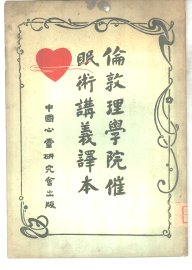 倫敦理學院催
眠術講義譯本
中國心靈研究會出版